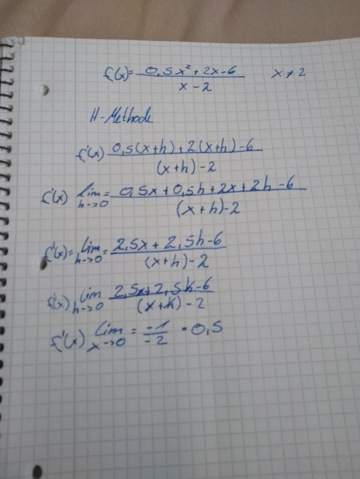 f(x) = 0,5x² + 2x - 6 / x - 2    x ≠ 2
H-Methode
f'(x) 0,5(x+h) + 2(x+h) - 6 / (x+h) - 2
f'(x) lim h→0 = 0,5x + 0,5h + 2x + 2h - 6 / (x+h) - 2
f'(x) = lim h→0 = 2,5x + 2,5h - 6 / (x+h) - 2
f'(x) lim h→0 2,5x + 2,5h - 6 / (x+h) - 2
f'(x) lim x→0 = -1 / -2 = 0,5